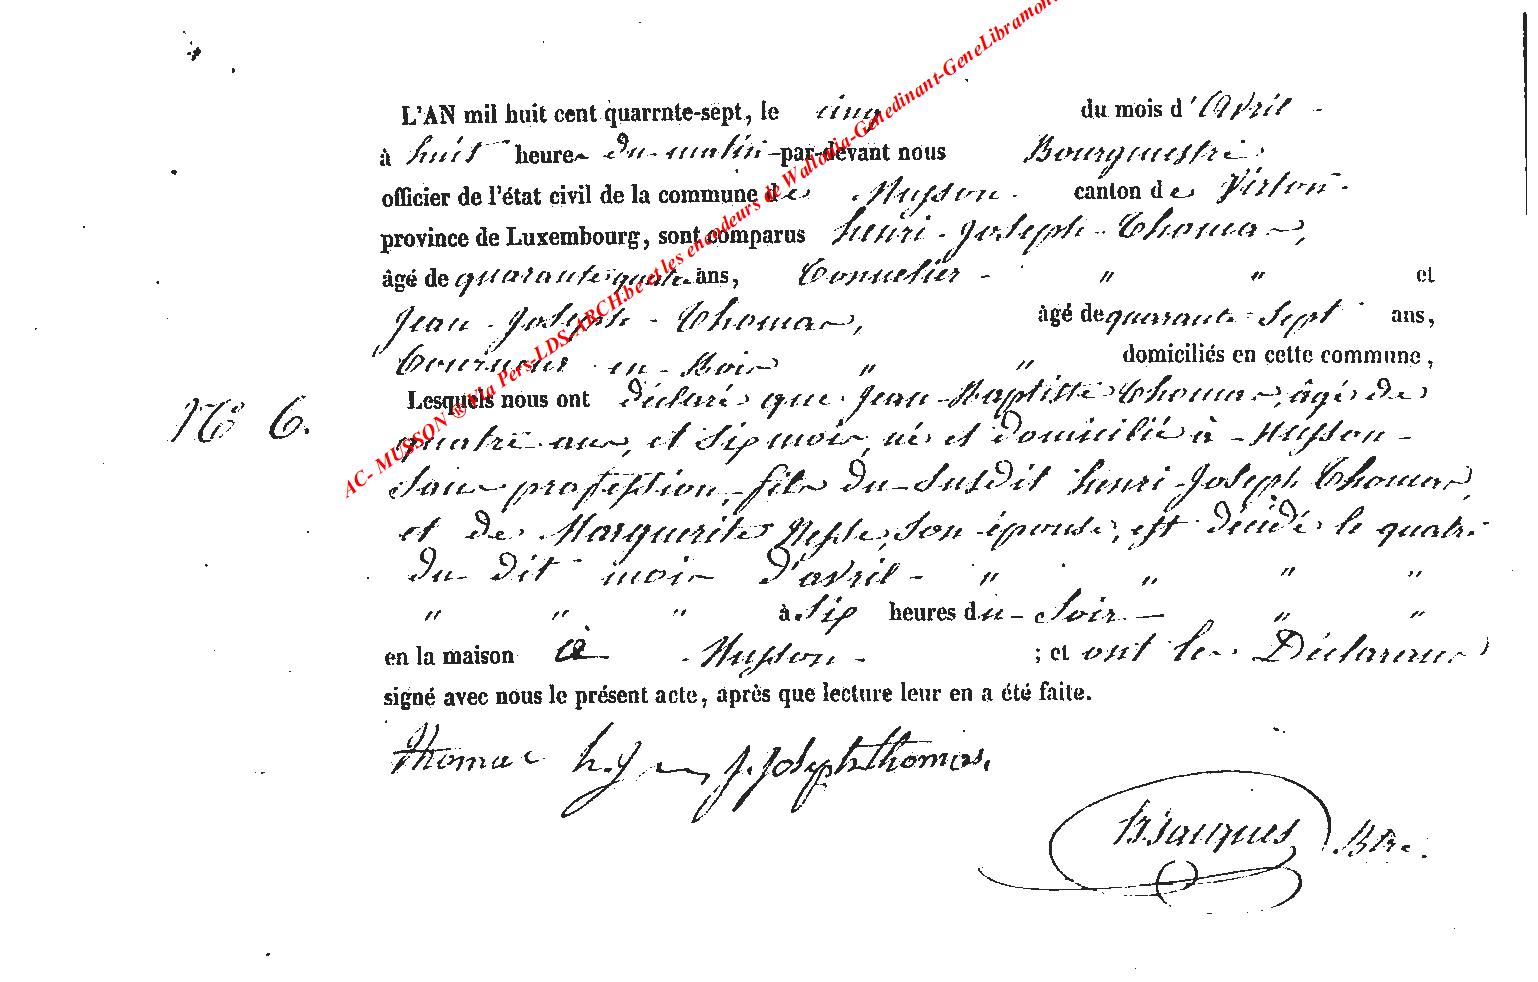 L'AN mil huit cent quarrnte-sept, le cinq du mois d'Avril -
à huit heures du matin - par-devant nous Bourgmestre
officier de l'état civil de la commune de Musson - canton de Virton -
province de Luxembourg, sont comparus henri - Joseph - Thomas,
âgé de quarante quatre ans, Tonnelier - " " et
Jean - Joseph - Thomas, âgé de quarante-Sept ans,
Tourneur en - Bois " " domiciliés en cette commune,
N° 6. Lesquels nous ont déclaré que Jean-Baptiste Thomas, âgé de
quatre ans, et Six mois, né et domicilié à - Musson -
Sans profession, - fils du - Susdit henri - Joseph Thomas,
et de Marguerite Nesse, Son épouse, est décédé le quatre
du dit mois d'avril - " " " "
" " " à Six heures du - Soir - " "
en la maison à - Musson - ; et ont les Déclarans
signé avec nous le présent acte, après que lecture leur en a été faite.
Thomas h. J J. Joseph thomas.
Jacques Btre.
AC- MUSSON ® Via Pers-LDS-ARCH.be et les encodeurs de Wallonia-Genedinant-GeneLibramon